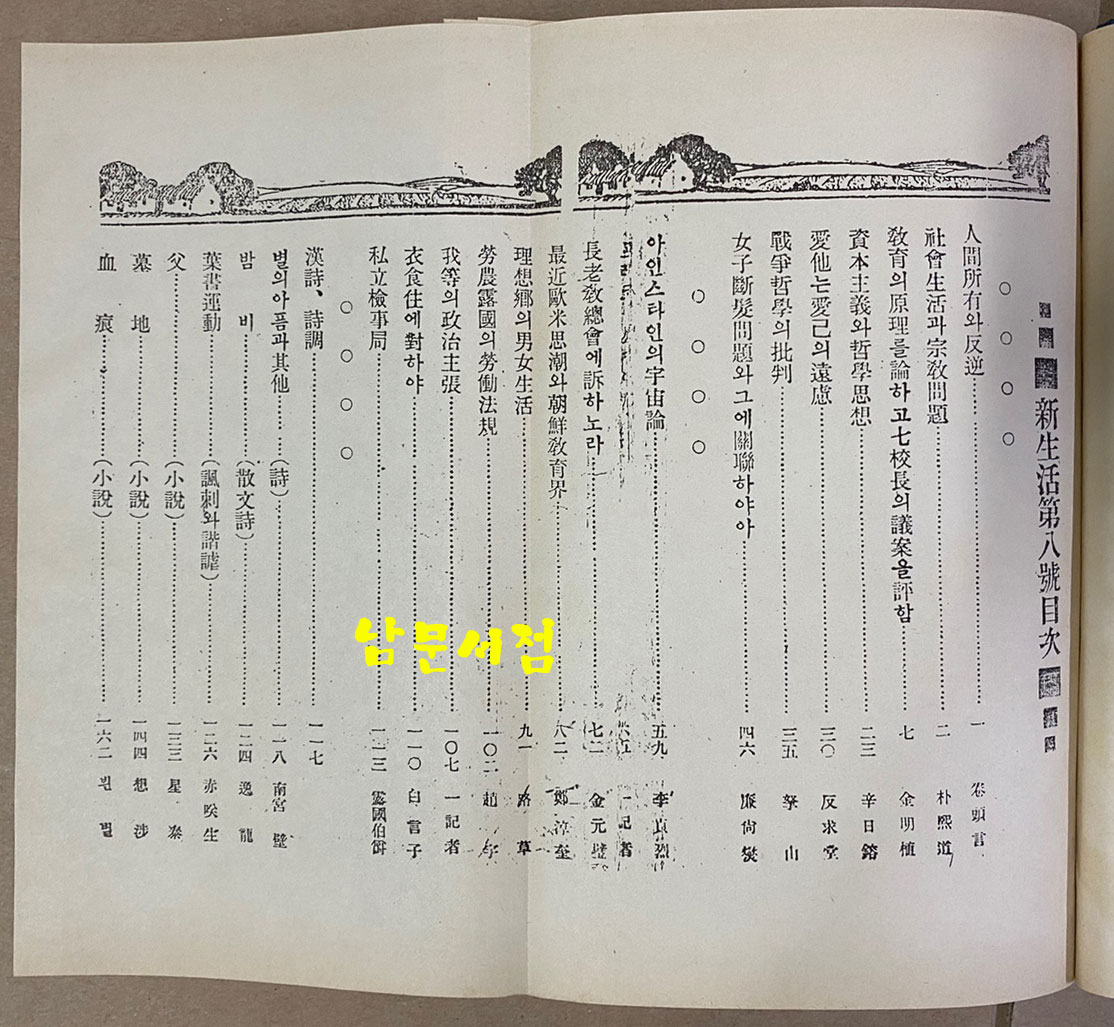 新生活第八號目次
○ ○ ○ ○
人間所有와反逆 一 卷頭言
社會生活과宗敎問題 二 朴熙道
敎育의原理를論하고七校長의議案을評함 七 金明植
資本主義와哲學思想 二三 辛日鎔
愛他는愛己의遠慮 三〇 反求堂
戰爭哲學의批判 三五 拏山
女子斷髮問題와그에關聯하야아 四六 廉尙燮
○ ○ ○ ○
아인스타인의宇宙論 五九 李
一記者
長老敎總會에訴하노라 七二 金元璧
最近歐米思潮와朝鮮敎育界 八二 鄭淳奎
理想鄕의男女生活 九一 路草
勞農露國의勞働法規 一〇二 趙
我等의政治主張 一〇七 一記者
衣食住에對하야 一一〇 白言子
私立檢事局 一一三 雲國伯爵
○ ○ ○ ○
漢詩、詩調 一一七
별의아픔과其他 (詩) 一一八 南宮璧
밤비 (散文詩) 一二四 逸龍
葉書運動 (諷刺와諧謔) 一二六 赤咲生
父 (小說) 一三三 星泰
墓地 (小說) 一四四 想涉
血痕 (小說) 一六二 빈별
남문서점